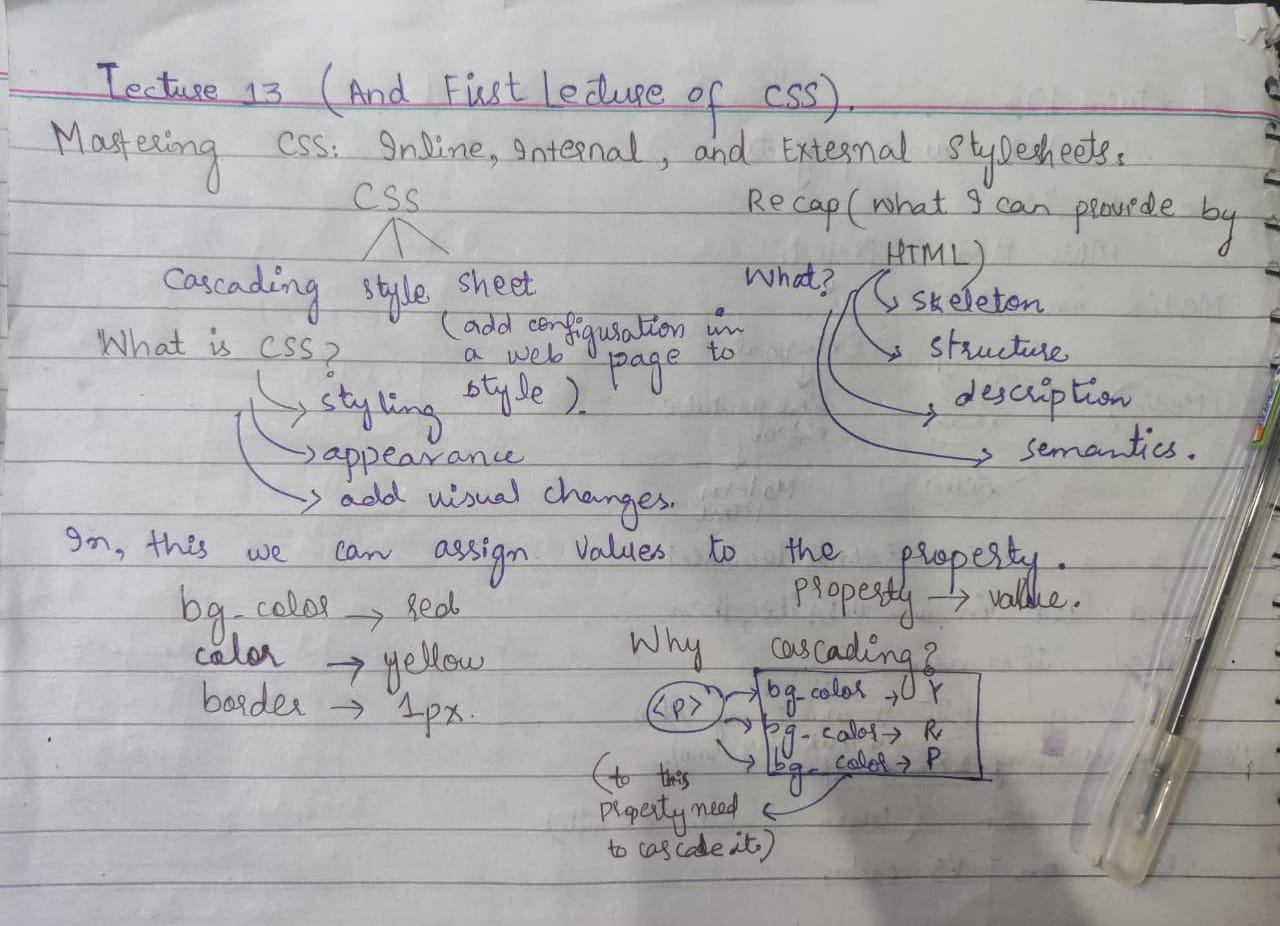 Lecture 13 (And First Lecture of CSS).
Mastering CSS: Inline, Internal, and External Stylesheets.
CSS
Cascading style sheet
(add configuration in
a web page to
style).
What is CSS?
styling
appearance
add visual changes.
Recap (what I can provide by
HTML)
What?
skeleton
structure
description
semantics.
In, this we can assign values to the property.
property → value.
bg-color → red
color → yellow
border → 1px.
Why cascading?
<p>
bg-color → Y
bg-color → R
bg-color → P
(to this
property need
to cascade it)